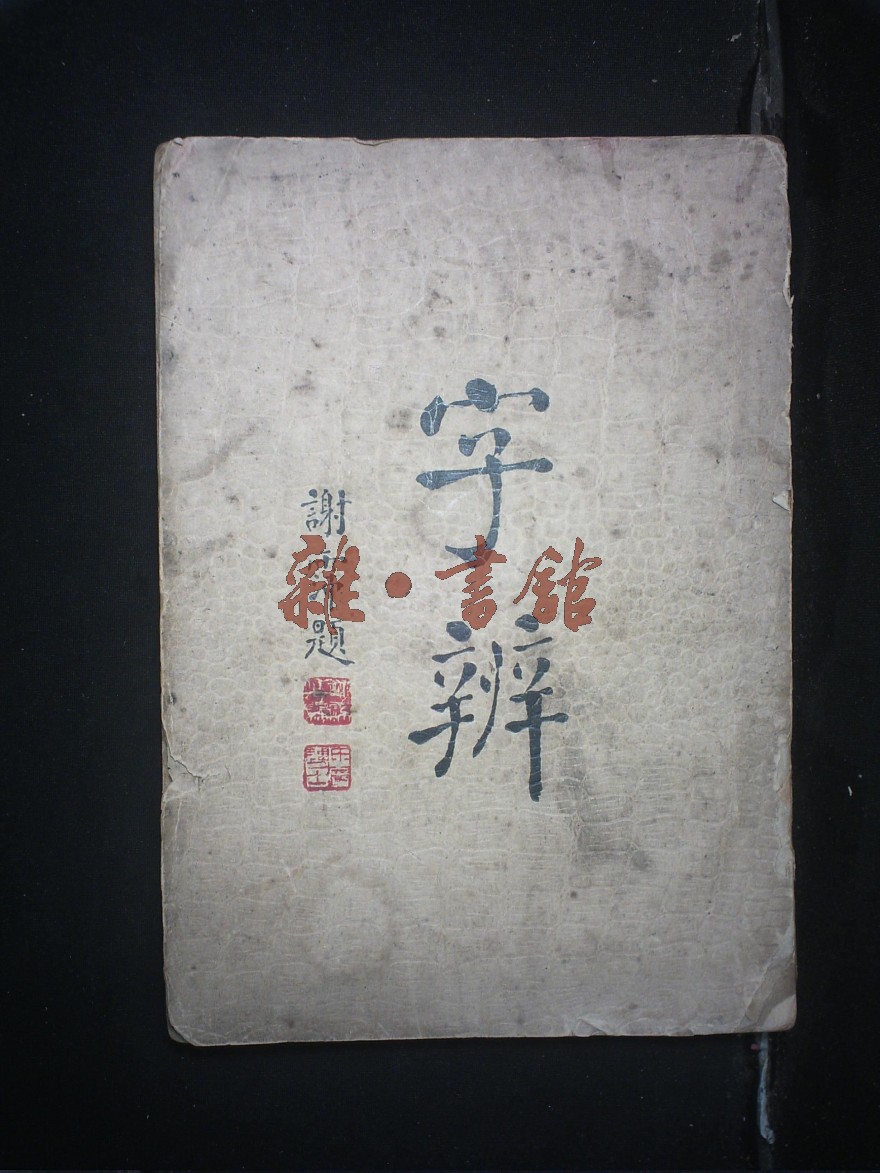 字辨
謝
題
雜·書館